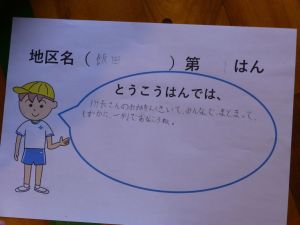 地区名（飯田　　）第　　はん
とうこうはんでは、
はん長さんのおはなしをきいて、みんなで、まとまって、
しずかに一列であるこうね。